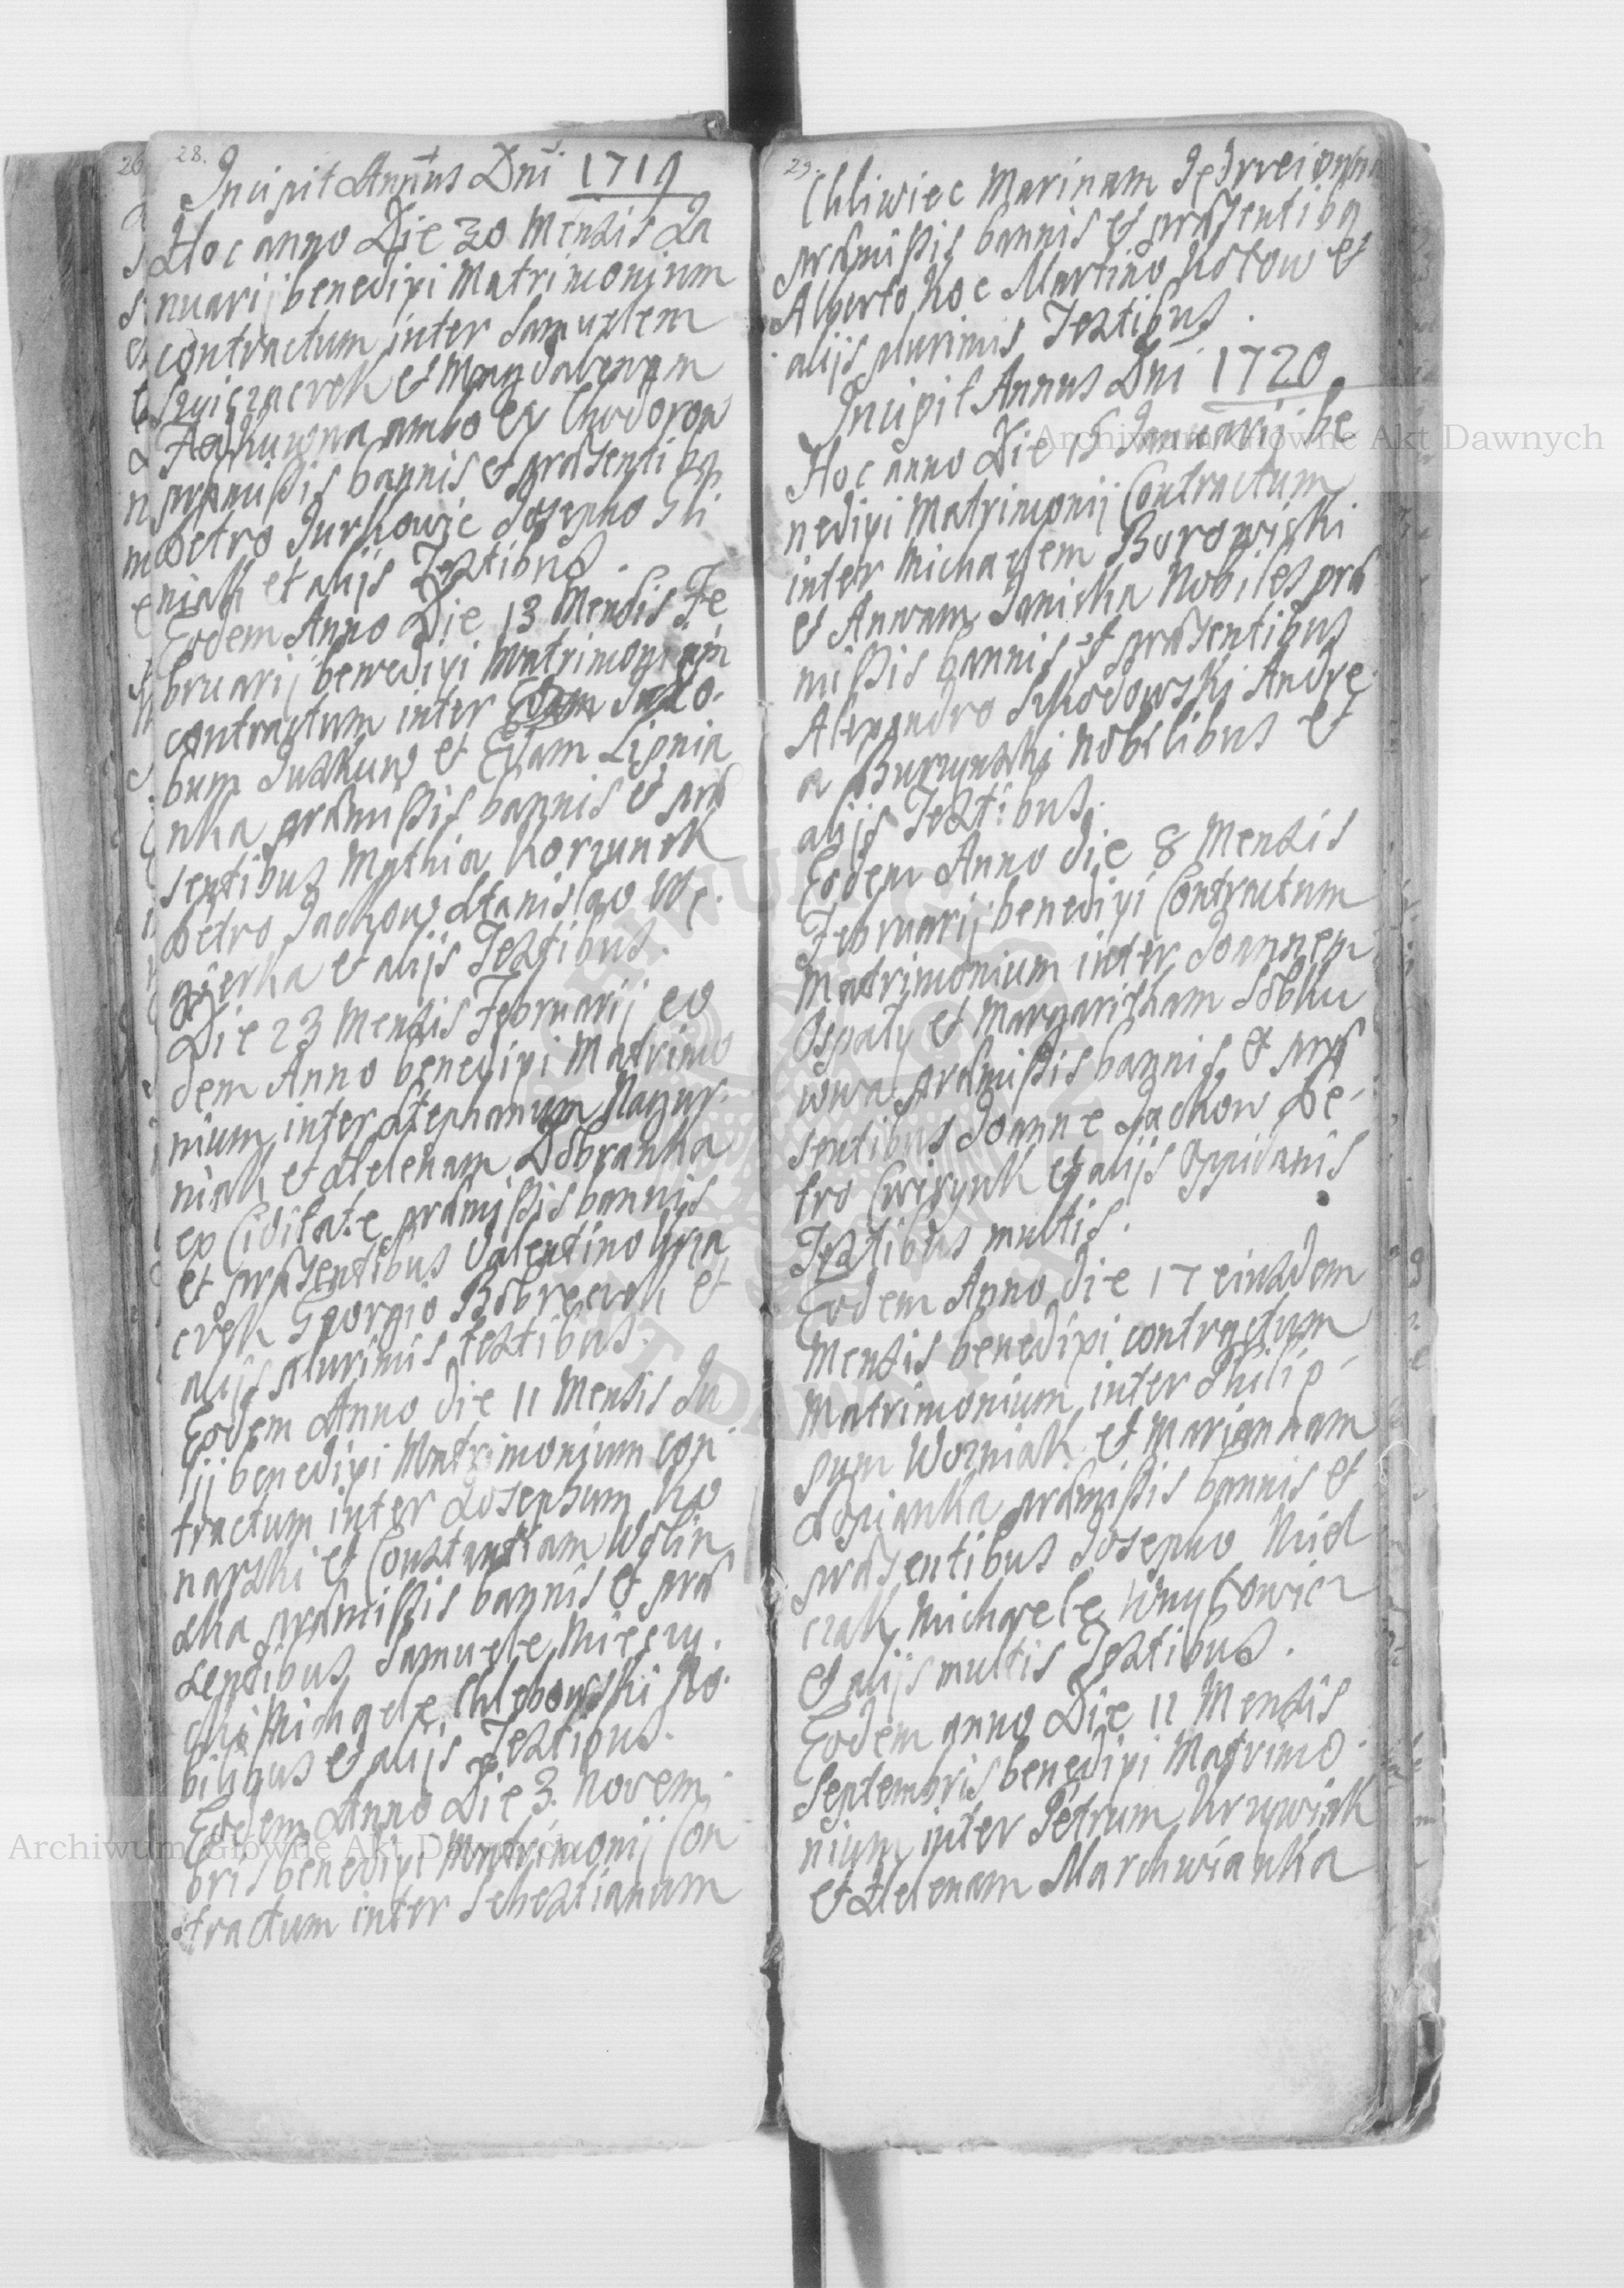 28.
Incipit Annus Dni 1719
Hoc anno Die 30 Mensis Ja
nuarij benedixi Matrimonium
contractum inter Samuelem
et Magdalenam
ambo ex Chodorow
præmissis bannis et præsentibq
Petro Jurkowic Josepho Gli
niak et alijs Testibus.
Eodem Anno Die 13 Mensis Fe
bruarij benedixi Matrimonium
contractum inter Jaco.
bum Juskuw et Evam Lipnia
nka præmissis bannis et præ
sentibus Mathia Korzunek
Petro Jackow Stanislao We.
gierka et alijs Testibus.
Die 23 Mensis Februarij eo
dem Anno benedixi Matrimo
nium inter Stephanum Nazur.
niak et Helenam Dobranka
ex Civitate præmissis bannis
et præsentibus Valentino
Georgio et
alijs plurimis testibus.
Eodem Anno die 11 Mensis Ju
lij benedixi Matrimonium con
tractum inter Josephum Ko
narski et Constantiam Wolin
ska præmissis bannis et præ
sentibus Samuele Mieczy.
ski Michaele Chlebowski No.
bilibus et alijs Testibus.
Eodem Anno Die 3. Novem.
bris benedixi Matrimonij Con
tractum inter Sebestianum
29.
Chliwiec Marinam
præmissis bannis et præsentibq
Alberto Koc Martino Kotow et
alijs plurimis Testibus.
Incipit Annus Dni 1720
Hoc anno Die 15 Januarij be
nedixi Matrimonij Contractum
inter Michaelem Borowiski
et Annam Janiska Nobiles præ
missis bannis et præsentibus
Alexandro Skodowski Andre
a Burzynski Nobilibus et
alijs Testibus.
Eodem Anno die 8 Mensis
Februarij benedixi Contractum
Matrimonium inter Joannem
Ospaly et Margaritham Sobku
wna præmissis bannis et præ
sentibus Joanne Jackow Pe-
tro et alijs Oppidanis
Testibus multis.
Eodem Anno die 17 eiusdem
Mensis benedixi contractum
Matrimonium inter Philip-
pum Wozniak et Mariannam
præmissis bannis et
præsentibus Josepho Kiel
czak Michaele
et alijs multis Testibus.
Eodem anno Die 11 Mensis
Septembris benedixi Matrimo.
nium inter Petrum Krzywisk
et Helenam Marchwianka
Archiwum Główne Akt Dawnych
Archiwum Główne Akt Dawnych